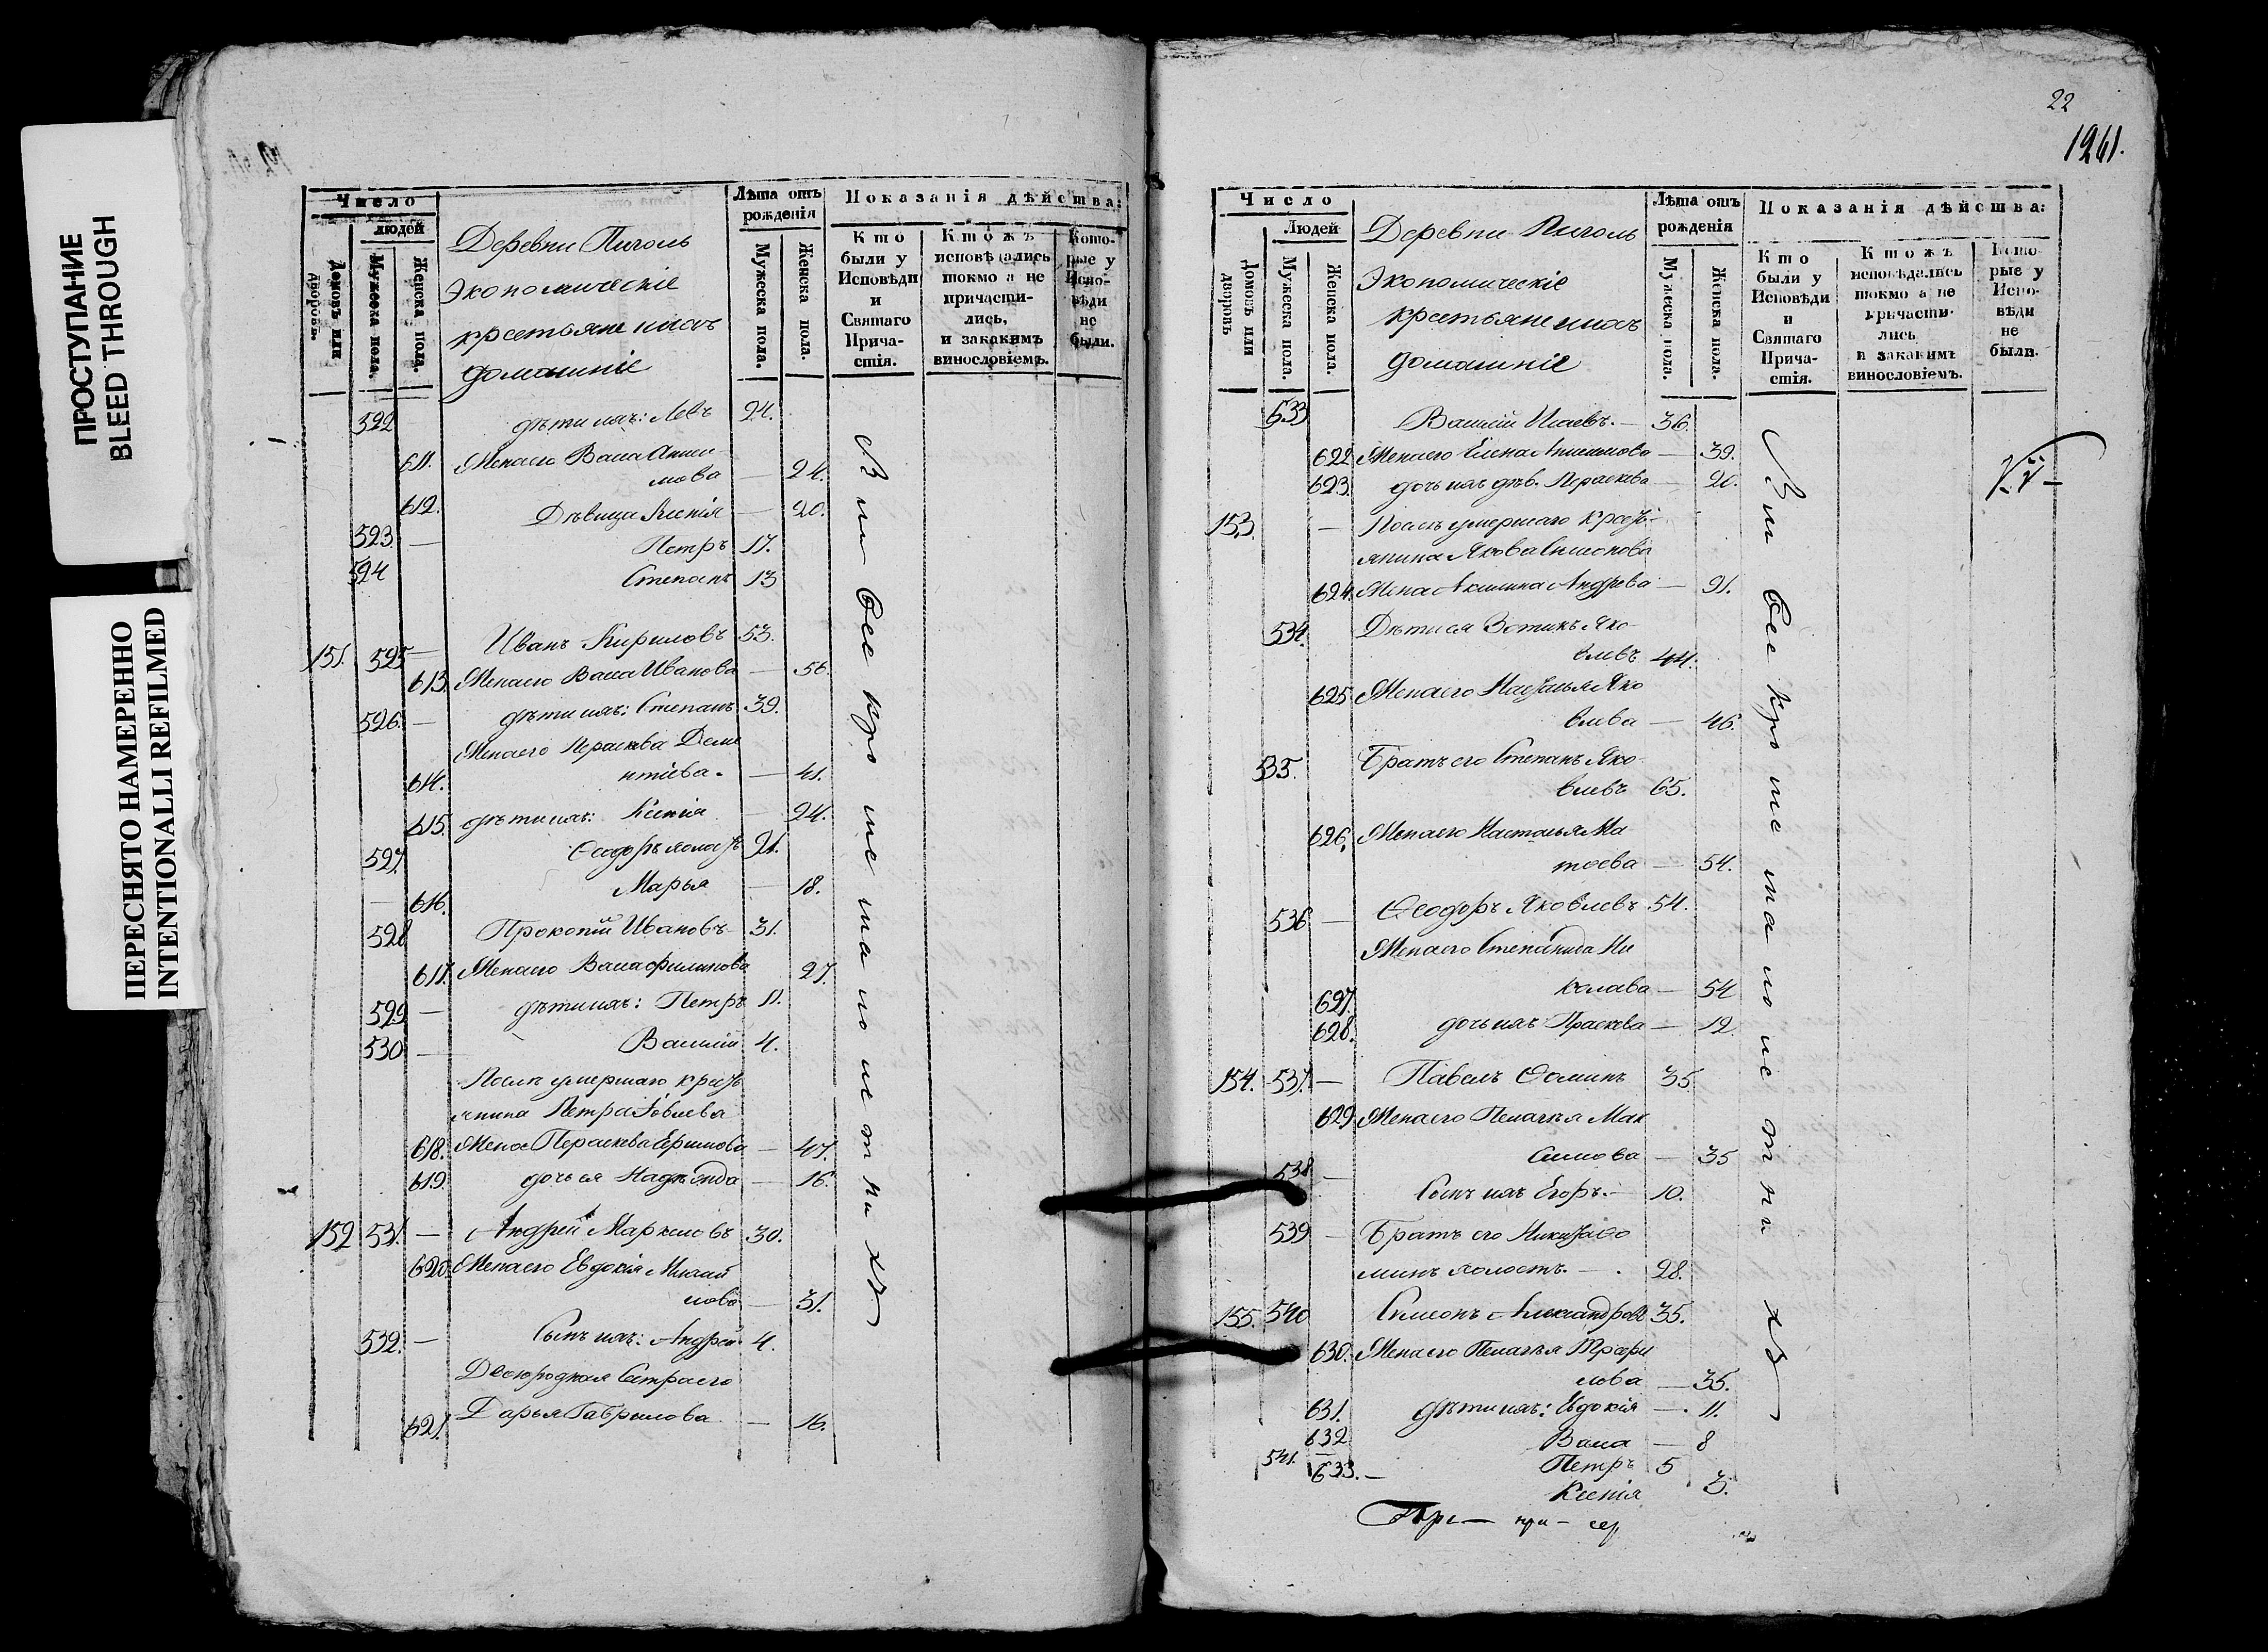 ПРОСТУПАНИЕ
BLEED THROUGH
ПЕРЕСНЯТО НАМЕРЕННО
INTENTIONALLI REFILMED
Число
людей
Домовъ или дворовъ.
Мужеска пола.
Женска пола.
Деревни Пиголь
Экономическіе
крестьяне ихъ
домашніе
Лѣта отъ рожденія
Мужеска пола.
Женска пола.
Показанія дѣйства:
Кто были у Исповѣди и Святаго Причастія.
Кто жъ исповѣдались токмо а не причастились, и закакимъ винословіемъ.
Которые у Исповѣди не были.
522 дѣти ихъ: Левъ 24.
611. Жена его Васа Аниси-
мова — 24.
612. Дѣвица Ксенія — 20.
523. — Петръ 17.
524 Степанъ 13
151. 525 — Иванъ Кириловъ 53.
613. Жена его Васа Иванова — 56.
526. — дѣти ихъ: Степанъ 39.
Жена его Параскева Деме
614. нтіева. — 41.
615. дѣти ихъ: Ксенія — 24.
527. Ѳеодоръ холостъ 21.
616. Марья — 18.
528 Прокопій Ивановъ 31.
617. Жена его Васа Филипова 27.
529 — дѣти ихъ: Петръ 11.
530 — Василій 4.
Послѣ умершаго кресть
янина Петра Іовлева
618. Жена Параскева Ефимова — 47.
619. дочь ея Надежда — 16.
152 531. — Андрей Марковъ 30.
620. Жена его Евдокія Михай
лова — 31.
532. — Сынъ ихъ: Андрей 4.
Двоюродная Сестра его
621. Дарья Гаврилова — 16.
Сіи все кромѣ малолетнихъ
22
1261.
Число
Людей
Домовъ или дворовъ
Мужеска пола.
Женска пола.
Деревни Пиголь
Экономическіе
крестьяне ихъ
домашніе
Лѣта отъ рожденія
Мужеска пола.
Женска пола.
Показанія дѣйства:
Кто были у Исповѣди и Святаго Причастія.
Кто жъ исповѣдались токмо а не причастились и закакимъ винословіемъ.
Которые у Исповѣди не были.
533 Василій Исаевъ. — 36.
622 Жена его Елена Анисимова — 39.
623. дочь ихъ дѣв. Параскева — 20.
153. — Послѣ умершаго кресть-
янина Якова Симонова
624. Жена Акилина Андреева — 91.
534. Дѣти ея Зотикъ Яко-
влевъ 44.
625 Жена его Настасья Яко
влева — 46.
535. Братъ его Степанъ Яко-
влевъ 65.
626. Жена его Настасья Ма
тѳеева — 54.
536 — Ѳеодоръ Яковлевъ 54.
Жена его Степанида Ни
627. колаева — 54
628. дочь ихъ Праскева — 12.
154. 537. — Павелъ Ѳоминъ 35
629 Жена его Пелагѣя Мак
симова — 35
538 — Сынъ ихъ Егоръ. — 10.
539 — Братъ его Никита Ѳо
минъ холостъ. — 28.
155. 540 Симеонъ Александровъ 35.
630. Жена его Пелагѣя Трофи
мова — 35.
631. дѣти ихъ: Евдокія — 11.
632 Васа — 8
541. Петръ 5
633. — Ксенія 3.
Сіи все кромѣ малолетнихъ